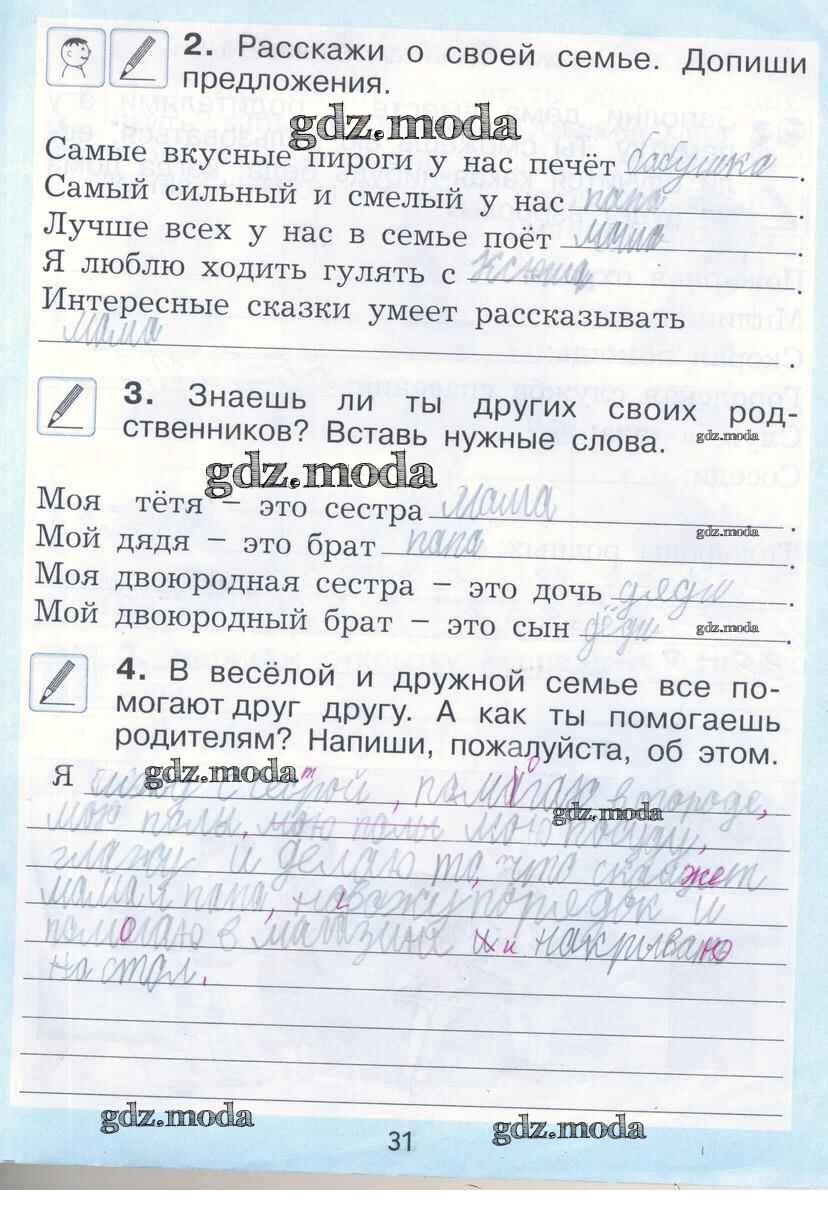 2. Расскажи о своей семье. Допиши
предложения.
gdz.moda
Самые вкусные пироги у нас печёт бабушка.
Самый сильный и смелый у нас папа.
Лучше всех у нас в семье поёт мама.
Я люблю ходить гулять с Ксюша.
Интересные сказки умеет рассказывать
мама.
3. Знаешь ли ты других своих род-
ственников? Вставь нужные слова.
gdz.moda
gdz.moda
Моя тётя – это сестра мама.
gdz.moda
Мой дядя – это брат папа.
Моя двоюродная сестра – это дочь дяди.
Мой двоюродный брат – это сын дёди.
gdz.moda
4. В весёлой и дружной семье все по-
могают друг другу. А как ты помогаешь
родителям? Напиши, пожалуйста, об этом.
Я с сестрой, помогаю в огороде,
gdz.moda
gdz.moda
мою полы, мою посуду,
глажу и делаю то, что скажет
мама и папа, навожу порядок и
помогаю в магазине и накрываю
на стол.
gdz.moda
31
gdz.moda